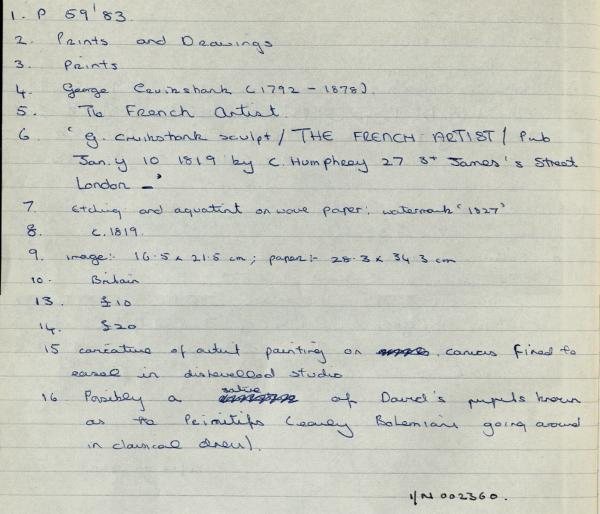 1. P 59'83.
2. Prints and Drawings
3. Prints
4. George Cruikshank (1792 - 1878)
5. The French Artist.
6 'G. Cruikshank sculpt / THE FRENCH ARTIST / Pub
Jan.y 10 1819 by C. Humphrey 27 St James's Street
London –'
7. Etching and aquatint on wove paper: watermark '1827'
8. c.1819.
9. image:- 16.5 x 21.5 cm; paper:- 28.3 x 34.3 cm
10. Britain
13. £10
14. £20
15 caricature of artist painting on canvas fixed to
easel in dishevelled studio
16 Possibly a satire of David's pupils known
as the Primitifs (early Bohemians going around
in classical dress).
1/N 002360.